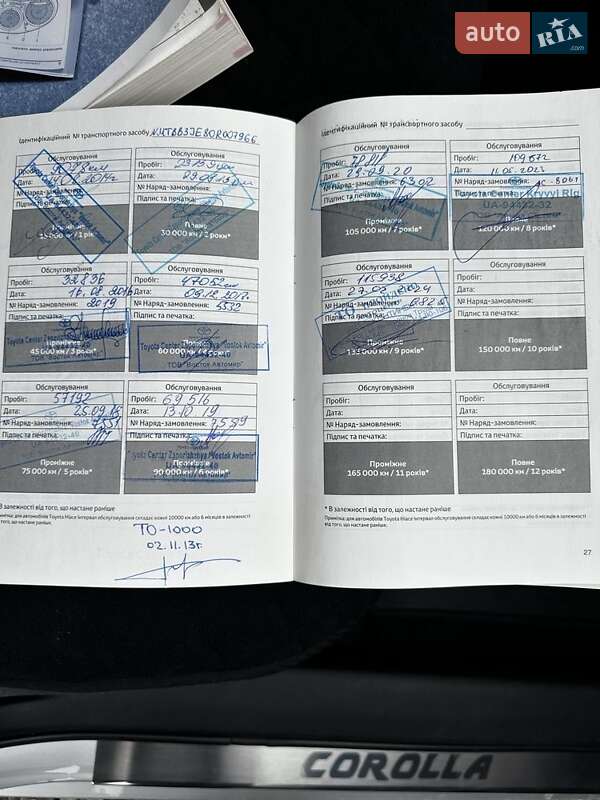 auto RIA.com
Ідентифікаційний № транспортного засобу
Обслуговування
Пробіг:
Дата:
№ Наряд-замовлення:
Підпис та печатка:
Проміжне
15 000 км / 1 рік*
Обслуговування
Пробіг:
Дата:
№ Наряд-замовлення:
Підпис та печатка:
Повне
30 000 км / 2 роки*
Обслуговування
Пробіг: 32836
Дата: 16.08.2016
№ Наряд-замовлення:
2019
Підпис та печатка:
Toyota Center Zaporizhzhya "Vostok Avtomir"
ТОВ "Восток Автомир"
Проміжне
45 000 км / 3 роки*
Обслуговування
Пробіг: 47052 км
Дата: 05.12.2017.
№ Наряд-замовлення: 5532
Підпис та печатка:
Toyota Center Zaporizhzhya "Vostok Avtomir"
ТОВ "Восток Автомир"
60 000 км / 4 роки*
Обслуговування
Пробіг: 57192
Дата: 25.09.18
№ Наряд-замовлення: 7551
Підпис та печатка:
Проміжне
75 000 км / 5 років*
Обслуговування
Пробіг: 69516
Дата: 13.10.19
№ Наряд-замовлення: 7559
Підпис та печатка:
Toyota Center Zaporizhzhya "Vostok Avtomir"
90 000 км / 6 років*
* В залежності від того, що настане раніше
Примітка: для автомобілів Toyota Hiace інтервал обслуговування складає кожні 10000 км або 6 місяців в залежності
від того, що настане раніше.
ТО-1000
02.11.13г.
Ідентифікаційний № транспортного засобу
Обслуговування
Пробіг:
Дата: 29.09.20
№ Наряд-замовлення: 6302
Підпис та печатка:
Проміжне
105 000 км / 7 років*
Обслуговування
Пробіг: 109672
Дата: 11.05.2023
№ Наряд-замовлення:
Підпис та печатка:
Center Kryvyi Rig
Повне
120 000 км / 8 років*
Обслуговування
Пробіг: 115938
Дата: 27.03.2024
№ Наряд-замовлення:
Підпис та печатка:
Проміжне
135 000 км / 9 років*
Обслуговування
Пробіг:
Дата:
№ Наряд-замовлення:
Підпис та печатка:
Повне
150 000 км / 10 років*
Обслуговування
Пробіг:
Дата:
№ Наряд-замовлення:
Підпис та печатка:
Проміжне
165 000 км / 11 років*
Обслуговування
Пробіг:
Дата:
№ Наряд-замовлення:
Підпис та печатка:
Повне
180 000 км / 12 років*
* В залежності від того, що настане раніше
Примітка: для автомобілів Toyota Hiace інтервал обслуговування складає кожні 10000 км або 6 місяців в залежності
від того, що настане раніше.
27
COROLLA